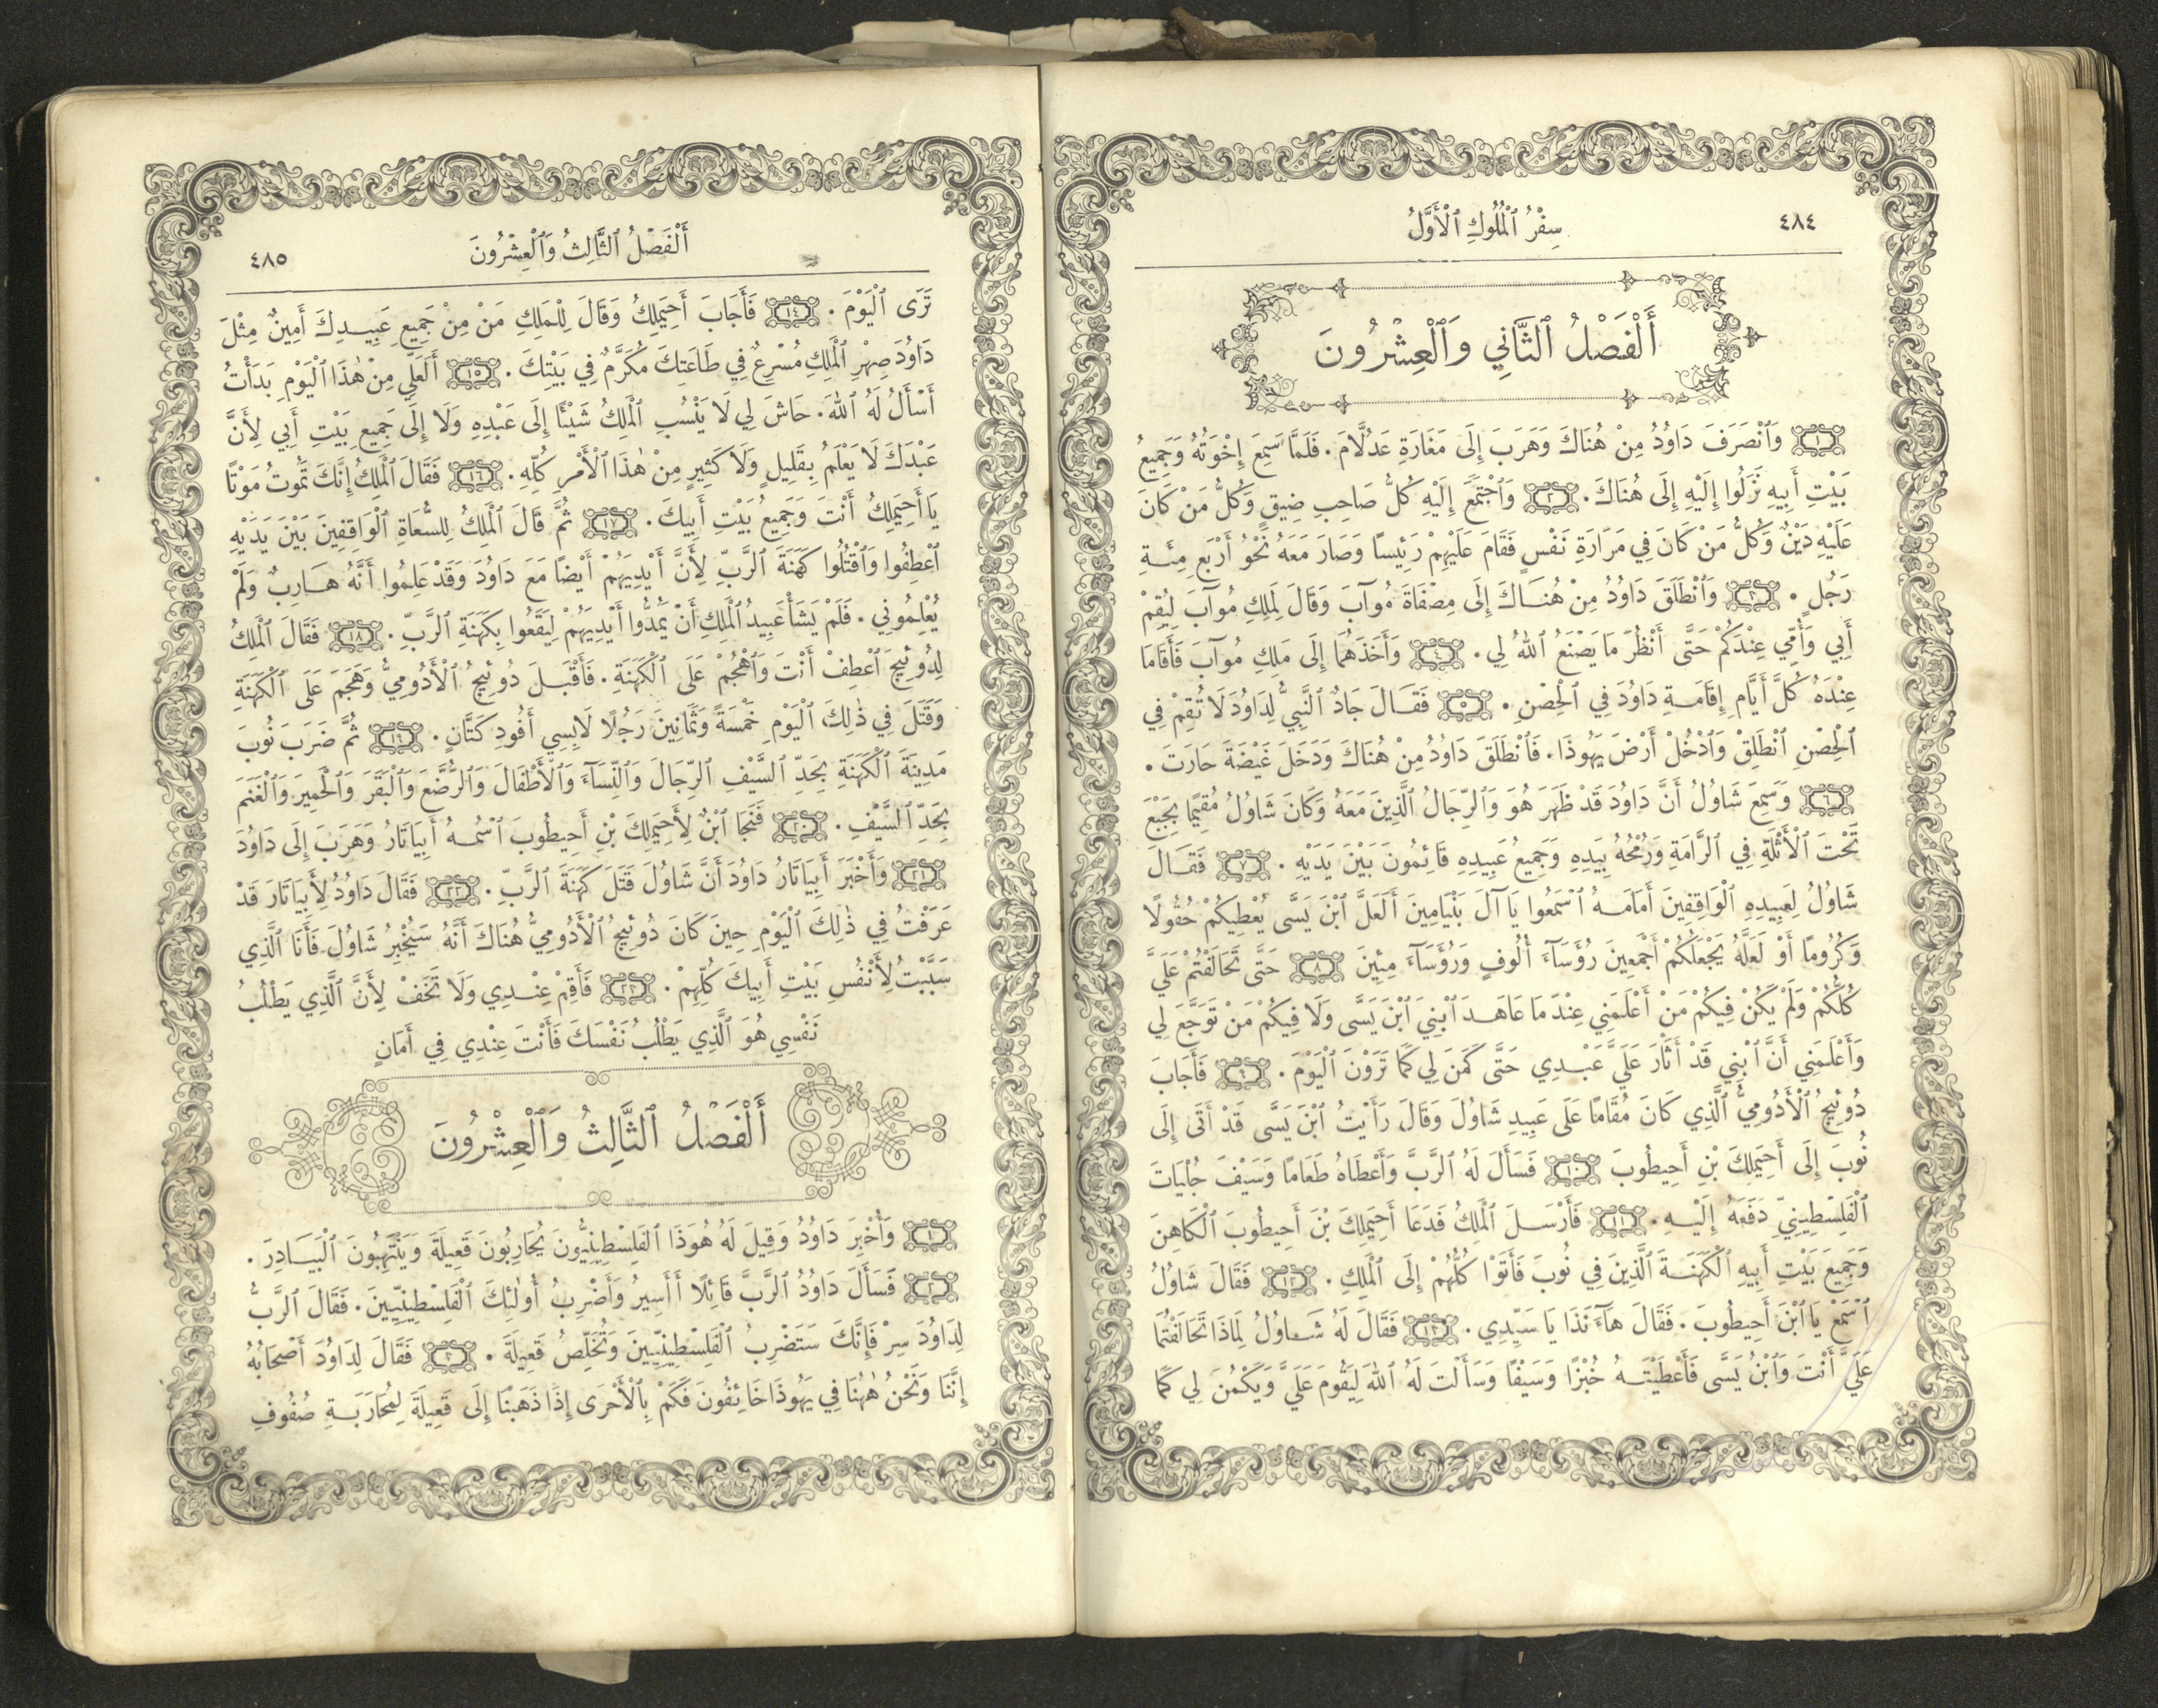 ٤٨٤
سِفْرُ ٱلْمُلُوكِ ٱلْأَوَّلُ
أَلْفَصْلُ ٱلثَّانِي وَٱلْعِشْرُونَ
١ وَٱنْصَرَفَ دَاوُدُ مِنْ هُنَاكَ وَهَرَبَ إِلَى مَغَارَةِ عَدُلَّامَ. فَلَمَّا سَمِعَ إِخْوَتُهُ وَجَمِيعُ
بَيْتِ أَبِيهِ نَزَلُوا إِلَيْهِ إِلَى هُنَاكَ. ٢ وَٱجْتَمَعَ إِلَيْهِ كُلُّ صَاحِبِ ضِيقٍ وَكُلُّ مَنْ كَانَ
عَلَيْهِ دَيْنٌ وَكُلُّ مَنْ كَانَ فِي مَرَارَةِ نَفْسٍ فَقَامَ عَلَيْهِمْ رَئِيسًا وَصَارَ مَعَهُ نَحْوُ أَرْبَعِ مِئَةِ
رَجُلٍ. ٣ وَٱنْطَلَقَ دَاوُدُ مِنْ هُنَاكَ إِلَى مِصْفَاةَ مُوآبَ وَقَالَ لِمَلِكِ مُوآبَ لِيُقِمْ
أَبِي وَأُمِّي عِنْدَكُمْ حَتَّى أَنْظُرَ مَا يَصْنَعُ ٱللهُ لِي. ٤ وَأَخَذَهُمَا إِلَى مَلِكِ مُوآبَ فَأَقَامَا
عِنْدَهُ كُلَّ أَيَّامِ إِقَامَةِ دَاوُدَ فِي ٱلْحِصْنِ. ٥ فَقَالَ جَادُ ٱلنَّبِيُّ لِدَاوُدَ لَا تُقِمْ فِي
ٱلْحِصْنِ ٱنْطَلِقْ وَٱدْخُلْ أَرْضَ يَهُوذَا. فَٱنْطَلَقَ دَاوُدُ مِنْ هُنَاكَ وَدَخَلَ غَيْضَةَ حَارَتَ.
٦ وَسَمِعَ شَاوُلُ أَنَّ دَاوُدَ قَدْ ظَهَرَ هُوَ وَٱلرِّجَالُ ٱلَّذِينَ مَعَهُ وَكَانَ شَاوُلُ مُقِيمًا بِجَبْعَ
تَحْتَ ٱلْأَثْلَةِ فِي ٱلرَّامَةِ وَرُمْحُهُ بِيَدِهِ وَجَمِيعُ عَبِيدِهِ قَائِمُونَ بَيْنَ يَدَيْهِ. ٧ فَقَالَ
شَاوُلُ لِعَبِيدِهِ ٱلْوَاقِفِينَ أَمَامَهُ ٱسْمَعُوا يَا آلَ بَنْيَامِينَ أَلَعَلَّ ٱبْنَ يَسَّى يُعْطِيكُمْ حُقُولًا
وَكُرُومًا أَوْ لَعَلَّهُ يَجْعَلُكُمْ أَجْمَعِينَ رُؤَسَآءَ أُلُوفٍ وَرُؤَسَآءَ مِئِينَ ٨ حَتَّى تَحَالَفْتُمْ عَلَيَّ
كُلُّكُمْ وَلَمْ يَكُنْ فِيكُمْ مَنْ أَعْلَمَنِي عِنْدَ مَا عَاهَدَ ٱبْنِيَ ٱبْنَ يَسَّى وَلَا فِيكُمْ مَنْ تَوَجَّعَ لِي
وَأَعْلَمَنِي أَنَّ ٱبْنِي قَدْ أَثَارَ عَلَيَّ عَبْدِي حَتَّى كَمَنَ لِي كَمَا تَرَوْنَ ٱلْيَوْمَ. ٩ فَأَجَابَ
دُوئِيجُ ٱلْأَدُومِيُّ ٱلَّذِي كَانَ مُقَامًا عَلَى عَبِيدِ شَاوُلَ وَقَالَ رَأَيْتُ ٱبْنَ يَسَّى قَدْ أَتَى إِلَى
نُوبَ إِلَى أَحِيمَلِكَ بْنِ أَحِيطُوبَ ١٠ فَسَأَلَ لَهُ ٱلرَّبَّ وَأَعْطَاهُ طَعَامًا وَسَيْفَ جُلْيَاتَ
ٱلْفَلِسْطِينِيِّ دَفَعَهُ إِلَيْهِ. ١١ فَأَرْسَلَ ٱلْمَلِكُ فَدَعَا أَحِيمَلِكَ بْنَ أَحِيطُوبَ ٱلْكَاهِنَ
وَجَمِيعَ بَيْتِ أَبِيهِ ٱلْكَهَنَةَ ٱلَّذِينَ فِي نُوبَ فَأَتَوْا كُلُّهُمْ إِلَى ٱلْمَلِكِ. ١٢ فَقَالَ شَاوُلُ
ٱسْمَعْ يَا ٱبْنَ أَحِيطُوبَ. فَقَالَ هَآءَنَذَا يَا سَيِّدِي. ١٣ فَقَالَ لَهُ شَاوُلُ لِمَاذَا تَحَالَفْتُمَا
عَلَيَّ أَنْتَ وَٱبْنُ يَسَّى فَأَعْطَيْتَهُ خُبْزًا وَسَيْفًا وَسَأَلْتَ لَهُ ٱللهَ لِيَقُومَ عَلَيَّ وَيَكْمُنَ لِي كَمَا
أَلْفَصْلُ ٱلثَّالِثُ وَٱلْعِشْرُونَ
٤٨٥
تَرَى ٱلْيَوْمَ. ١٤ فَأَجَابَ أَحِيمَلِكُ وَقَالَ لِلْمَلِكِ مَنْ مِنْ جَمِيعِ عَبِيدِكَ أَمِينٌ مِثْلَ
دَاوُدَ صِهْرِ ٱلْمَلِكِ مُسْرِعٌ فِي طَاعَتِكَ مُكَرَّمٌ فِي بَيْتِكَ. ١٥ أَلَعَلِّي مِنْ هٰذَا ٱلْيَوْمِ بَدَأْتُ
أَسْأَلُ لَهُ ٱللهَ. حَاشَ لِي لَا يَنْسُبِ ٱلْمَلِكُ شَيْئًا إِلَى عَبْدِهِ وَلَا إِلَى جَمِيعِ بَيْتِ أَبِي لِأَنَّ
عَبْدَكَ لَا يَعْلَمُ بِقَلِيلٍ وَلَا كَثِيرٍ مِنْ هٰذَا ٱلْأَمْرِ كُلِّهِ. ١٦ فَقَالَ ٱلْمَلِكُ إِنَّكَ تَمُوتُ مَوْتًا
يَا أَحِيمَلِكُ أَنْتَ وَجَمِيعُ بَيْتِ أَبِيكَ. ١٧ ثُمَّ قَالَ ٱلْمَلِكُ لِلسُّعَاةِ ٱلْوَاقِفِينَ بَيْنَ يَدَيْهِ
ٱعْطِفُوا وَٱقْتُلُوا كَهَنَةَ ٱلرَّبِّ لِأَنَّ أَيْدِيَهُمْ أَيْضًا مَعَ دَاوُدَ وَقَدْ عَلِمُوا أَنَّهُ هَارِبٌ وَلَمْ
يُعْلِمُونِي. فَلَمْ يَشَأْ عَبِيدُ ٱلْمَلِكِ أَنْ يَمُدُّوا أَيْدِيَهُمْ لِيَقَعُوا بِكَهَنَةِ ٱلرَّبِّ. ١٨ فَقَالَ ٱلْمَلِكُ
لِدُوئِيجَ ٱعْطِفْ أَنْتَ وَٱهْجُمْ عَلَى ٱلْكَهَنَةِ. فَأَقْبَلَ دُوئِيجُ ٱلْأَدُومِيُّ وَهَجَمَ عَلَى ٱلْكَهَنَةِ
وَقَتَلَ فِي ذٰلِكَ ٱلْيَوْمِ خَمْسَةً وَثَمَانِينَ رَجُلًا لَابِسِي أَفُودِ كَتَّانٍ. ١٩ ثُمَّ ضَرَبَ نُوبَ
مَدِينَةَ ٱلْكَهَنَةِ بِحَدِّ ٱلسَّيْفِ ٱلرِّجَالَ وَٱلنِّسَآءَ وَٱلْأَطْفَالَ وَٱلرُّضَّعَ وَٱلْبَقَرَ وَٱلْحَمِيرَ وَٱلْغَنَمَ
بِحَدِّ ٱلسَّيْفِ. ٢٠ فَنَجَا ٱبْنٌ لِأَحِيمَلِكَ بْنِ أَحِيطُوبَ ٱسْمُهُ أَبِيَاتَارُ وَهَرَبَ إِلَى دَاوُدَ
٢١ وَأَخْبَرَ أَبِيَاتَارُ دَاوُدَ أَنَّ شَاوُلَ قَتَلَ كَهَنَةَ ٱلرَّبِّ. ٢٢ فَقَالَ دَاوُدُ لِأَبِيَاتَارَ قَدْ
عَرَفْتُ فِي ذٰلِكَ ٱلْيَوْمِ حِينَ كَانَ دُوئِيجُ ٱلْأَدُومِيُّ هُنَاكَ أَنَّهُ سَيُخْبِرُ شَاوُلَ فَأَنَا ٱلَّذِي
سَبَّبْتُ لِأَنْفُسِ بَيْتِ أَبِيكَ كُلِّهِمْ. ٢٣ فَأَقِمْ عِنْدِي وَلَا تَخَفْ لِأَنَّ ٱلَّذِي يَطْلُبُ
نَفْسِي هُوَ ٱلَّذِي يَطْلُبُ نَفْسَكَ فَأَنْتَ عِنْدِي فِي أَمَانٍ
أَلْفَصْلُ ٱلثَّالِثُ وَٱلْعِشْرُونَ
١ وَأُخْبِرَ دَاوُدُ وَقِيلَ لَهُ هُوَذَا ٱلْفَلِسْطِينِيُّونَ يُحَارِبُونَ قَعِيلَةَ وَيَنْتَهِبُونَ ٱلْبَيَادِرَ.
٢ فَسَأَلَ دَاوُدُ ٱلرَّبَّ قَائِلًا أَأَسِيرُ وَأَضْرِبُ أُولٰئِكَ ٱلْفَلِسْطِينِيِّينَ. فَقَالَ ٱلرَّبُّ
لِدَاوُدَ سِرْ فَإِنَّكَ سَتَضْرِبُ ٱلْفَلِسْطِينِيِّينَ وَتُخَلِّصُ قَعِيلَةَ. ٣ فَقَالَ لِدَاوُدَ أَصْحَابُهُ
إِنَّنَا وَنَحْنُ هٰهُنَا فِي يَهُوذَا خَائِفُونَ فَكَمْ بِٱلْأَحْرَى إِذَا ذَهَبْنَا إِلَى قَعِيلَةَ لِمُحَارَبَةِ صُفُوفِ